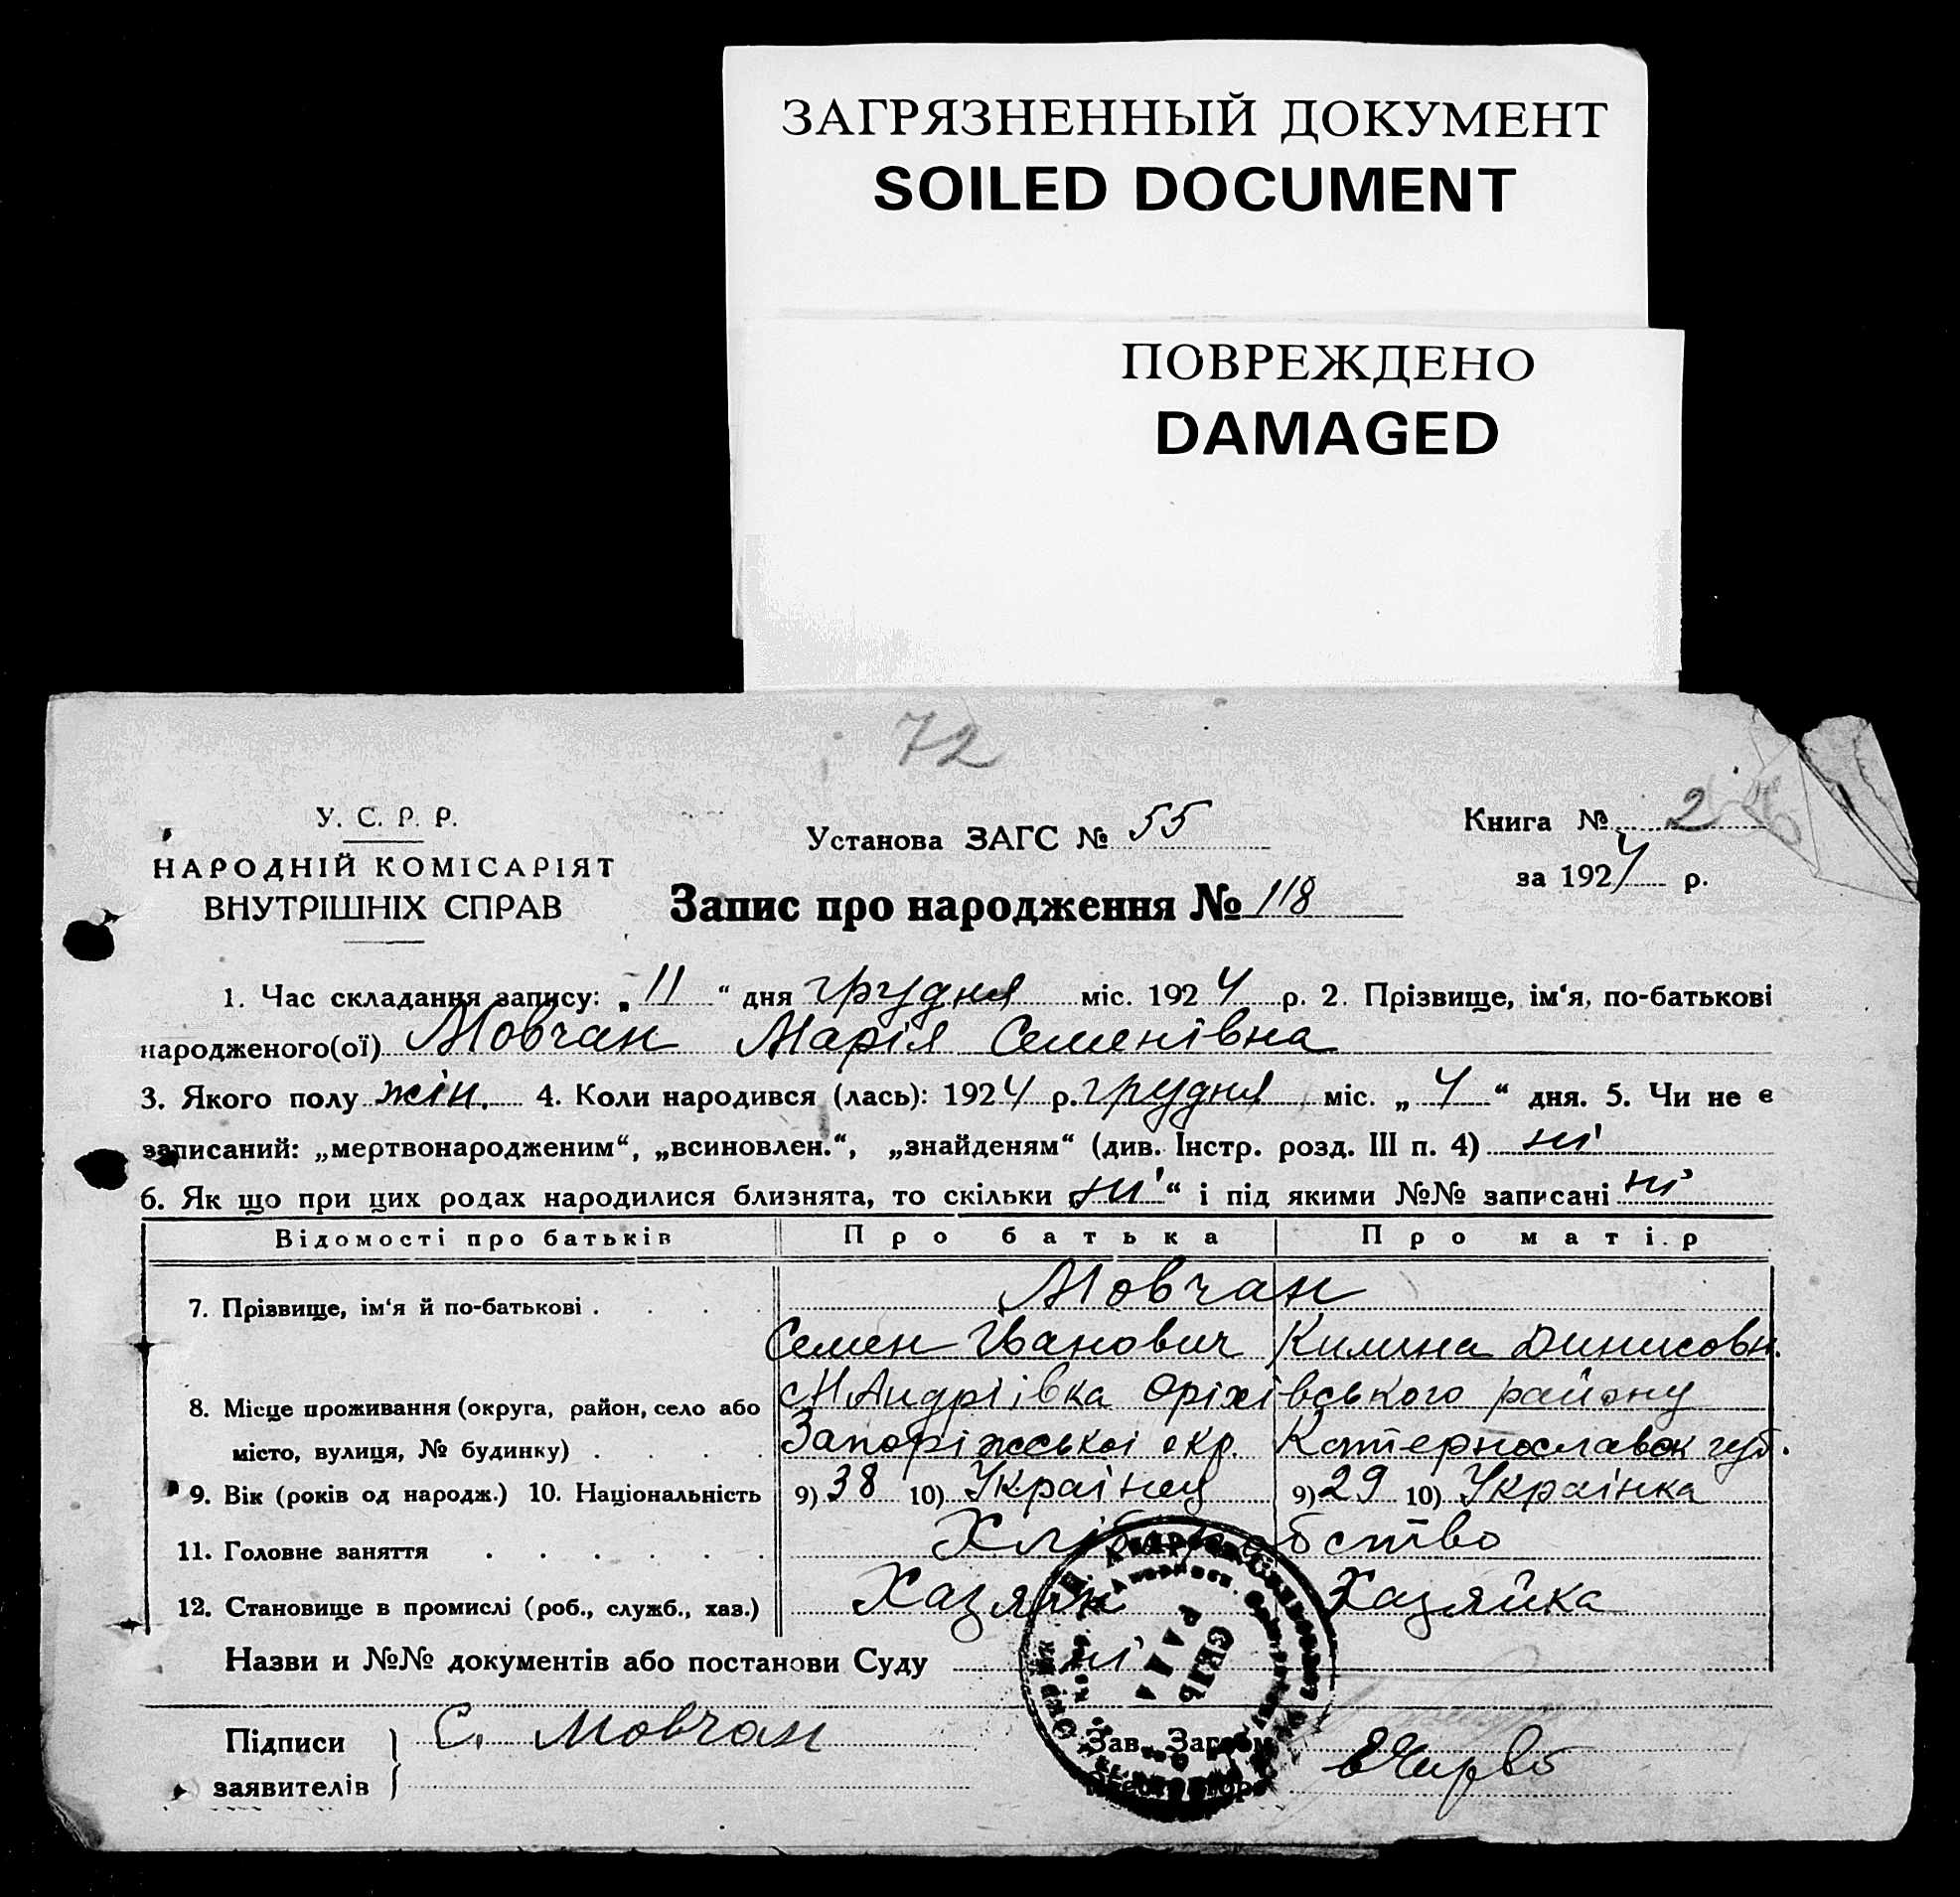 ЗАГРЯЗНЕННЫЙ ДОКУМЕНТ
SOILED DOCUMENT
ПОВРЕЖДЕНО
DAMAGED
72
У. С. Р. Р.
НАРОДНІЙ КОМІСАРІЯТ
ВНУТРІШНІХ СПРАВ
Установа ЗАГС № 55
Книга № 2
за 1924 р.
Запис про народження № 118
1. Час складання запису: „11“ дня грудня міс. 1924 р. 2. Прізвище, ім‘я, по-батькові
народженого(ої) Мовчан Марія Семенівна
3. Якого полу жін. 4. Коли народився (лась): 1924 р. грудня міс. „4“ дня. 5. Чи не є
записаний: „мертвонародженим“, „всиновлен.“, „знайденям“ (див. Інстр. розд. III п. 4) ні
6. Як що при цих родах народилися близнята, то скільки „ні“ і під якими №№ записані ні
Відомості про батьків Про батька Про матір
7. Прізвище, ім‘я й по-батькові . . . . Мовчан
Семен Іванович Килина Динисовн.
8. Місце проживання (округа, район, село або Н Андріівка Оріхівського району
місто, вулиця, № будинку) . . . . Запоріжськоі окр. Катернославск губ.
9. Вік (років од народж.) 10. Національність 9) 38 10) Украінец 9) 29 10) Украінка
11. Головне заняття . . . . . . Хліборобство
12. Становище в промислі (роб., служб., хаз.) Хазяін Хазяйка
Назви и №№ документів або постанови Суду ні
Підписи С. Мовчан
заявителів
Зав. Загсом
СЕЛЬ
РАДА